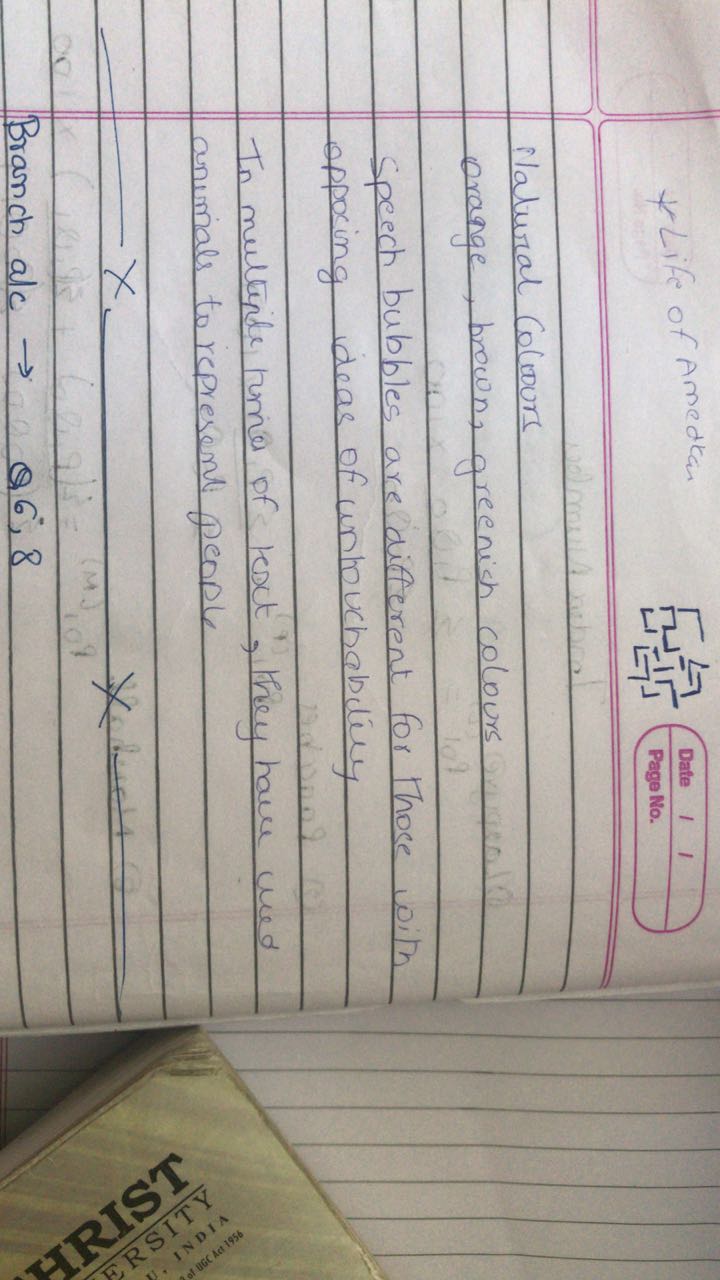 *Life of Amedkar
Date / /
Page No.
Natural Colours
orange, brown, greenish colours
Speech bubbles are different for those with
opposing ideas of untouchability
In multiple times of text, they have used
animals to represent people
Branch a/c → Q6, 8
of UGC Act 1956
INDIA